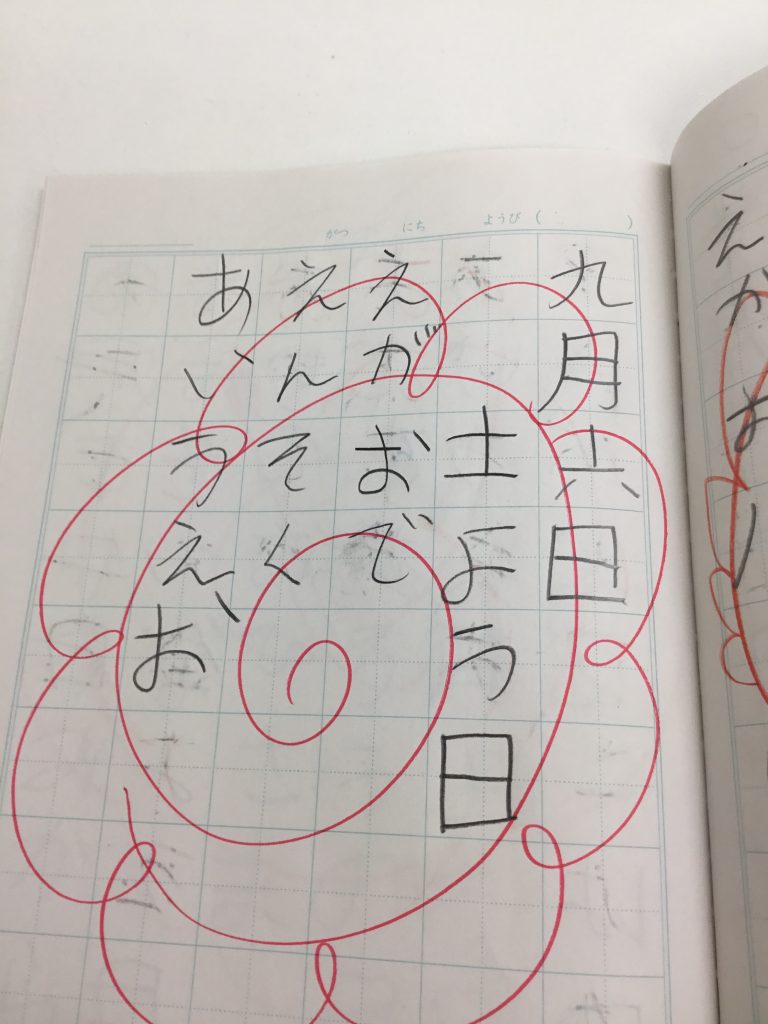 がつ　にち　ようび（　）
九月六日
土よう日
えがおで
えんそく
あいうえお